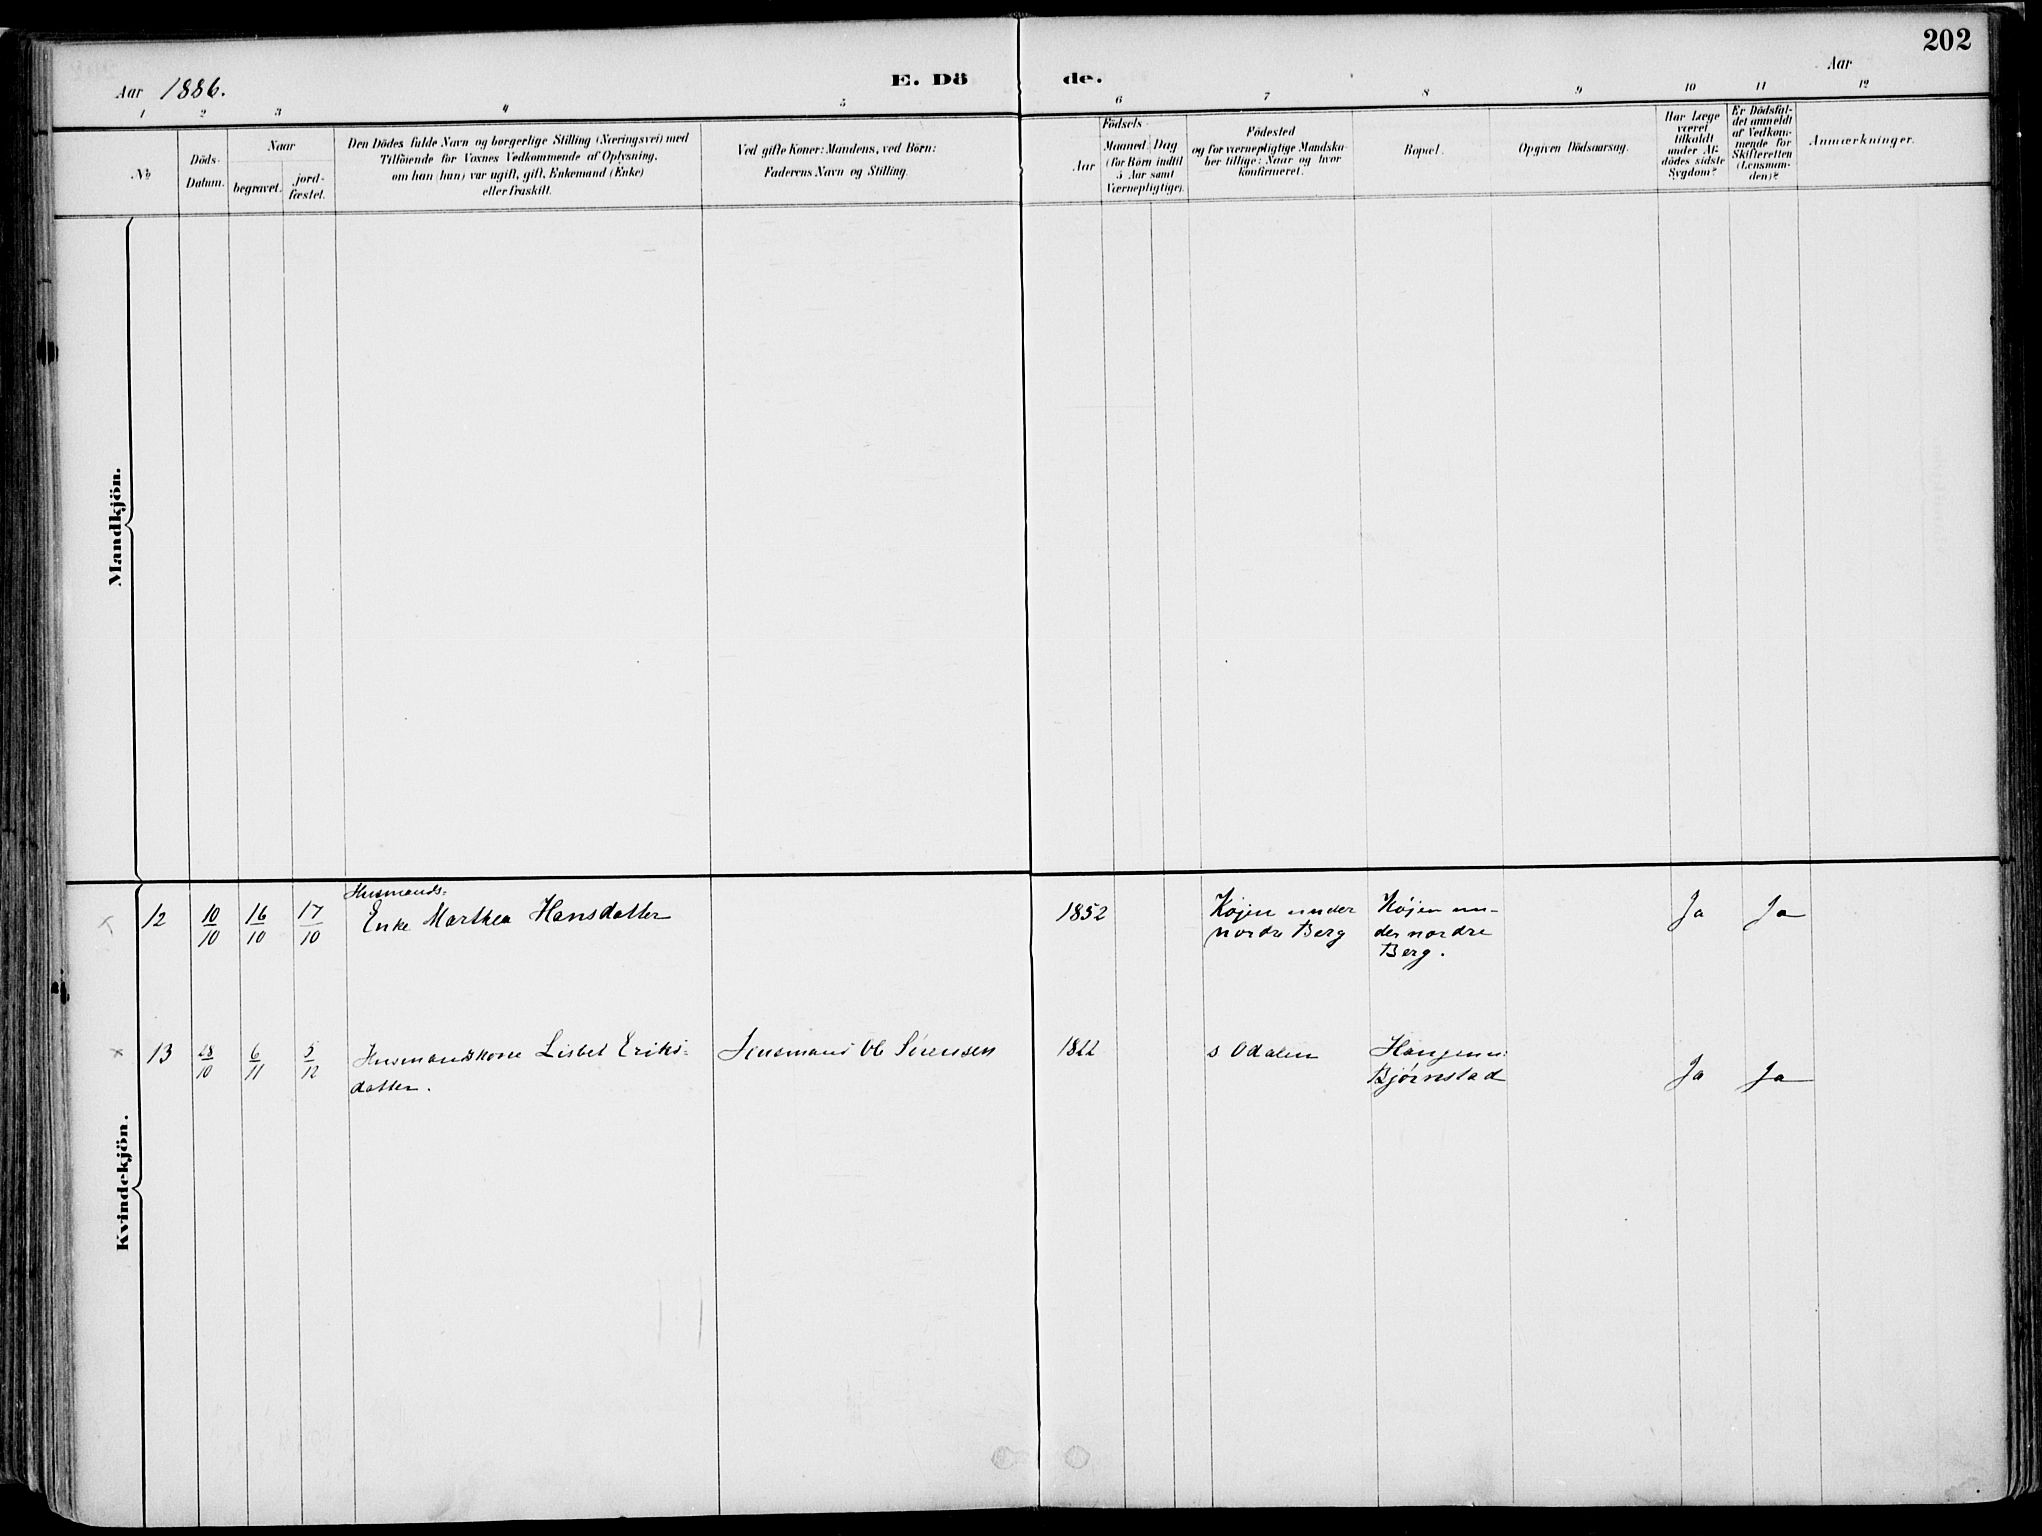 202
Aar 1886.
E. Dö de.
Aar
1 2 3 4 5 6 7 8 9 10 11 12
No
Döds-
Datum.
Naar
begravet.
jord-
fæstet.
Den Dödes fulde Navn og borgerlige Stilling (Næringsvei) med
Tilföiende for Voxnes Vedkommende af Oplysning,
om han (hun) var ugift, gift, Enkemand (Enke)
eller fraskilt.
Ved gifte Koner: Mandens, ved Börn:
Faderens Navn og Stilling.
Födsels-
Aar
Maaned
Dag
(for Börn indtil
5 Aar samt
Værnepligtige).
Födested
og for værnepligtige Mandska-
ber tillige: Naar og hvor
konfirmeret.
Bopæl.
Opgiven Dödsaarsag.
Har Læge
været
tilkaldt
under Af-
dödes sidste
Sygdom?
Er Dödsfal-
det anmeldt
af Vedkom-
mende for
Skifteretten
(Lensman-
den)?
Anmærkninger.
Mandkjön.
Kvindekjön.
12 10/10 16/10 17/10 Husmands-
Enke Marthea Hansdatter 1852 Køjen under Køjen un- Ja Ja
nordre Berg der nordre
Berg.
13 28/10 6/11 5/12 Husmandskone Lisbet Eriks- Ol. Sørensen 1822 s Odalen
datter. Bjørnstad Ja Ja